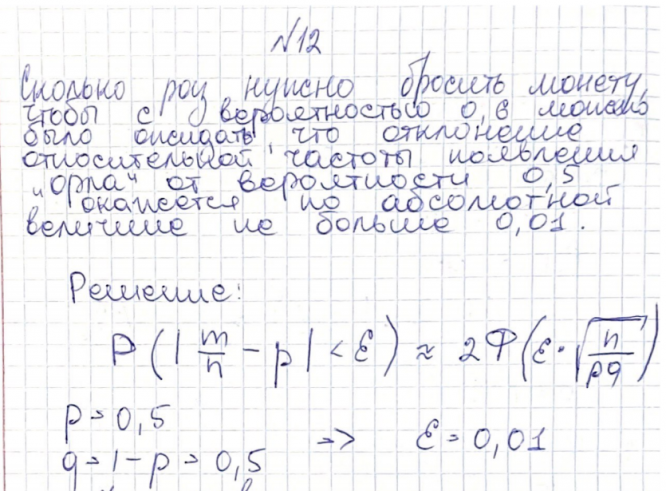 №12
Сколько раз нужно бросить монету,
чтобы с вероятностью 0,6 можно
было ожидать, что отклонение
относительной частоты появления
"орла" от вероятности 0,5
окажется по абсолютной
величине не больше 0,01.
Решение:
P(|m/n - p| < ε) ≈ 2Φ(ε·√(n/pq))
p = 0,5
=> ε = 0,01
q = 1 - p = 0,5